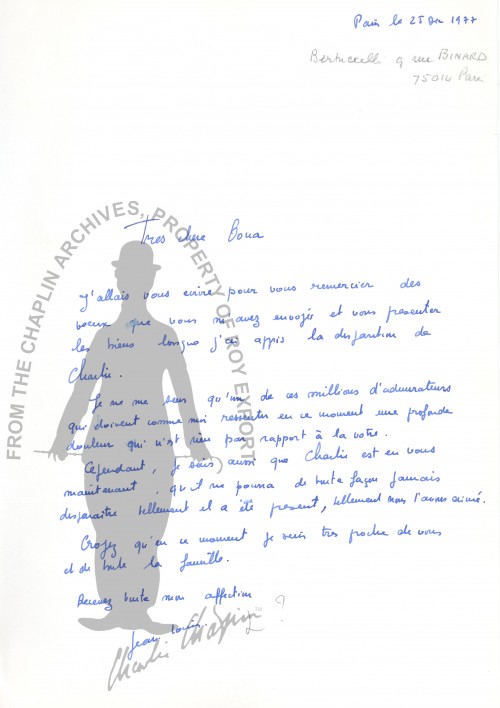 Paris le 25 Dec 1977
Bertuccelli 9 rue BINARD
75014 Paris
FROM THE CHAPLIN ARCHIVES, PROPERTY OF ROY EXPORT
Tres chere Oona
J'allais vous ecrire pour vous remercier des
voeux que vous m'avez envoyés et vous presenter
les miens lorsque j'ai appris la disparition de
Charlie.
Je ne me sens qu'un de ces millions d'admirateurs
qui doivent comme moi ressentir en ce moment une profonde
douleur qui n'est rien par rapport à la votre.
Cependant, je sais aussi que Charlie est en vous
maintenant, qu'il ne pourra de toute façon jamais
disparaitre tellement il a été present, tellement nous l'avons aimé.
Croyez qu'en ce moment je suis tres proche de vous
et de toute la famille.
Recevez toute mon affection
Jean Louis.
?
Charlie Chaplin TM